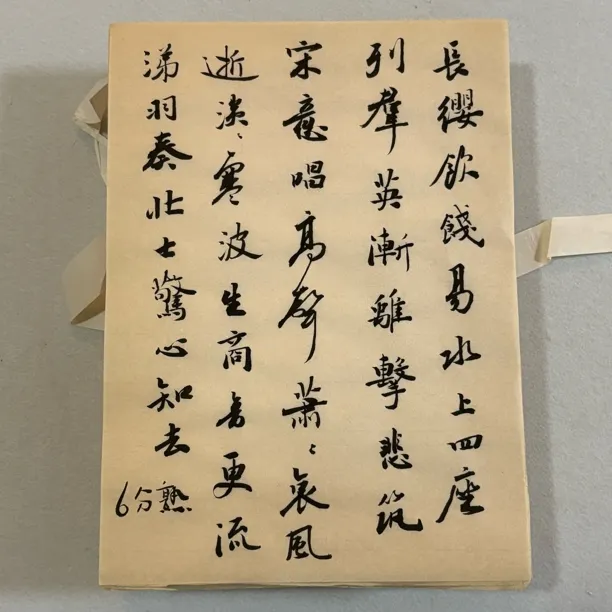 長纓飲餞易水上四座
列羣英漸離擊悲筑
宋意唱高聲蕭〻哀風
逝淡〻寒波生商音更流
涕羽奏壯士驚心知去
6分熟